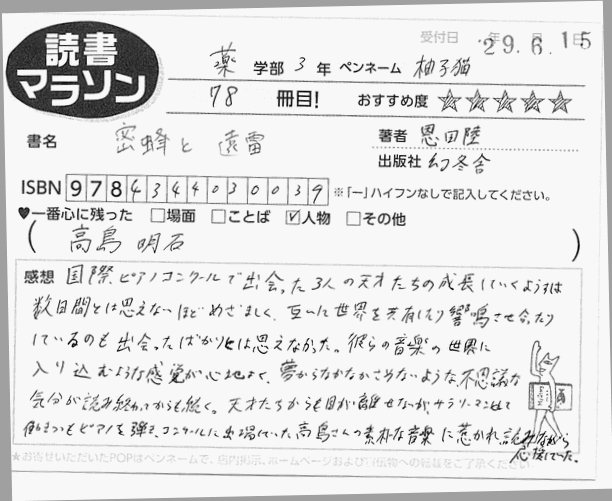 読書
マラソン
受付日 ・年 月 日
29.6.15
薬 学部 3 年 ペンネーム 柚子猫
78 冊目! おすすめ度 ☆☆☆☆☆
書名 蜜蜂と遠雷
著者 恩田陸
出版社 幻冬舎
ISBN 9784344030039 ※「-」ハイフンなしで記入してください。
♥一番心に残った □場面 □ことば ☑人物 □その他
(高島 明石)
感想 国際ピアノコンクールで出会った3人の天才たちの成長していくようすは
数日間とは思えないほどめざましく、互いに世界を共有したり響鳴させ合ったり
しているのも出会ったばかりとは思えなかった。彼らの音楽の世界に
入り込むような感覚が心地よく、夢からなかなかさめないような、不思議な
気分が読み終わってからも続く。天才たちからも目が離せないが、サラリーマンとして
働きつつもピアノを弾き、コンクールに出場していた高島さんの素朴な音楽に惹かれ、読みながら
応援していた。
★お寄せいただいたPOPはペンネームで、店内掲示、ホームページおよび